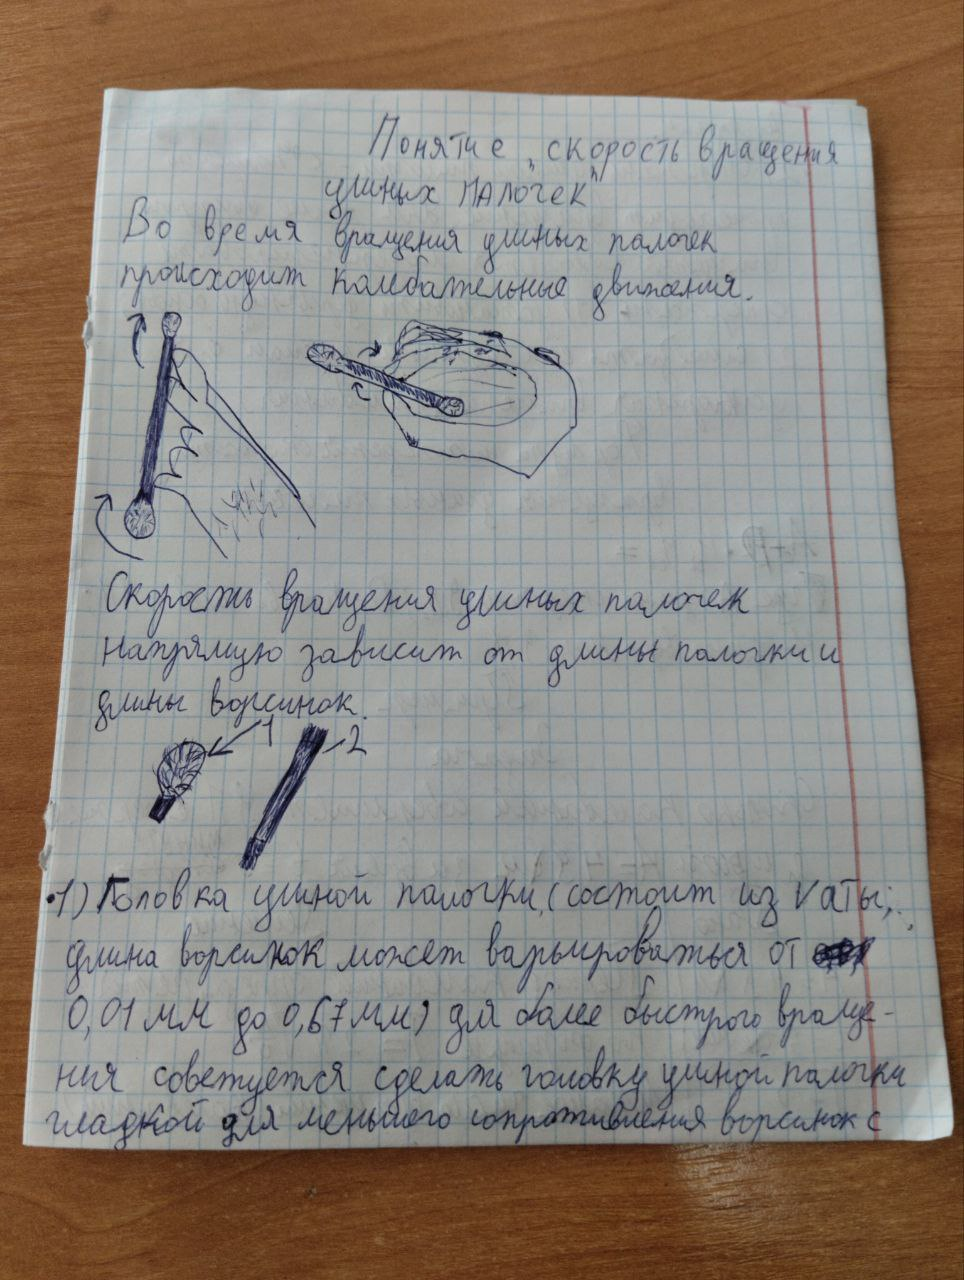 Понятие „скорость вращения
ушных палочек"
Во время вращения ушных палочек
происходит колебательные движения.
Скорость вращения ушных палочек
напрямую зависит от длины палочки и
длины ворсинок.
1
2
1) Головка ушной палочки, (состоит из ваты;
длина ворсинок может варьироваться от
0,01 мм до 0,67 мм) для более быстрого враще-
ния советуется сделать головку ушной палочки
гладкой для меньшего сопротивления ворсинок с